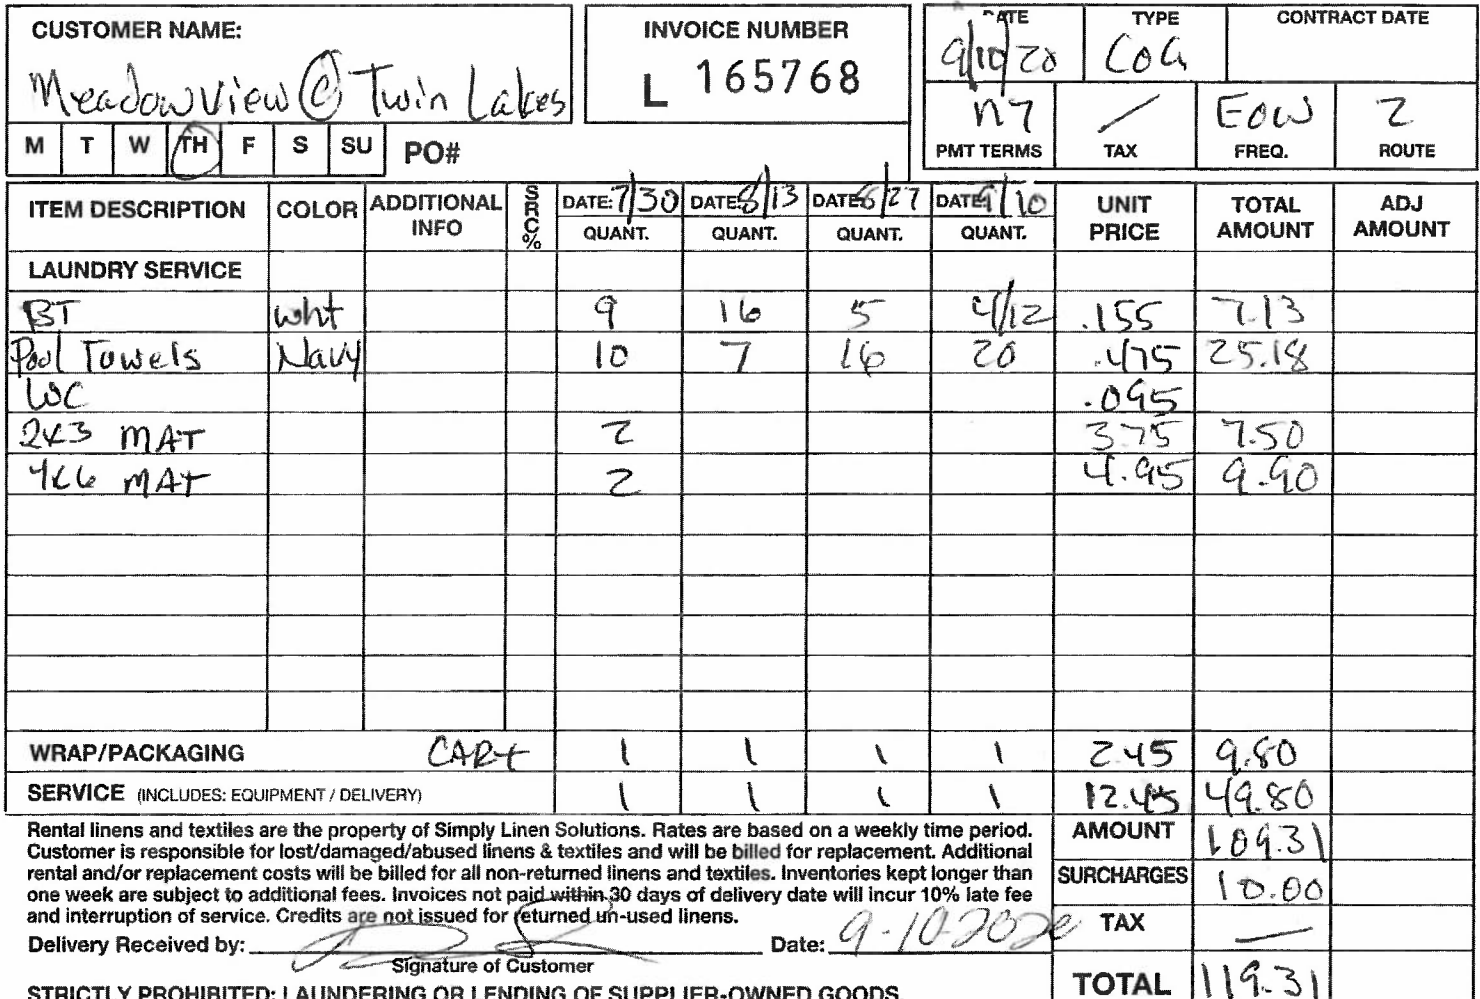 CUSTOMER NAME:
Meadowview @ Twin Lakes
INVOICE NUMBER
L 165768
DATE TYPE CONTRACT DATE
9/10/20 COG
N7 / EOW 2
PMT TERMS TAX FREQ. ROUTE
M T W TH F S SU PO#
ITEM DESCRIPTION COLOR ADDITIONAL INFO SRC% DATE: 7/30 QUANT. DATE: 8/13 QUANT. DATE: 8/27 QUANT. DATE: 9/10 QUANT. UNIT PRICE TOTAL AMOUNT ADJ AMOUNT
LAUNDRY SERVICE
BT wht 9 16 5 4/12 .155 7.13
Pool Towels Navy 10 7 16 20 .475 25.18
WC .095
2x3 MAT 2 3.75 7.50
4x6 MAT 2 4.95 9.90
WRAP/PACKAGING CART 1 1 1 1 2.45 9.80
SERVICE (INCLUDES: EQUIPMENT / DELIVERY) 1 1 1 1 12.45 49.80
Rental linens and textiles are the property of Simply Linen Solutions. Rates are based on a weekly time period.
Customer is responsible for lost/damaged/abused linens & textiles and will be billed for replacement. Additional
rental and/or replacement costs will be billed for all non-returned linens and textiles. Inventories kept longer than
one week are subject to additional fees. Invoices not paid within 30 days of delivery date will incur 10% late fee
and interruption of service. Credits are not issued for returned un-used linens.
AMOUNT 109.31
SURCHARGES 10.00
TAX —
TOTAL 119.31
Delivery Received by: Date: 9-10-2020
Signature of Customer
STRICTLY PROHIBITED: LAUNDERING OR LENDING OF SUPPLIER-OWNED GOODS